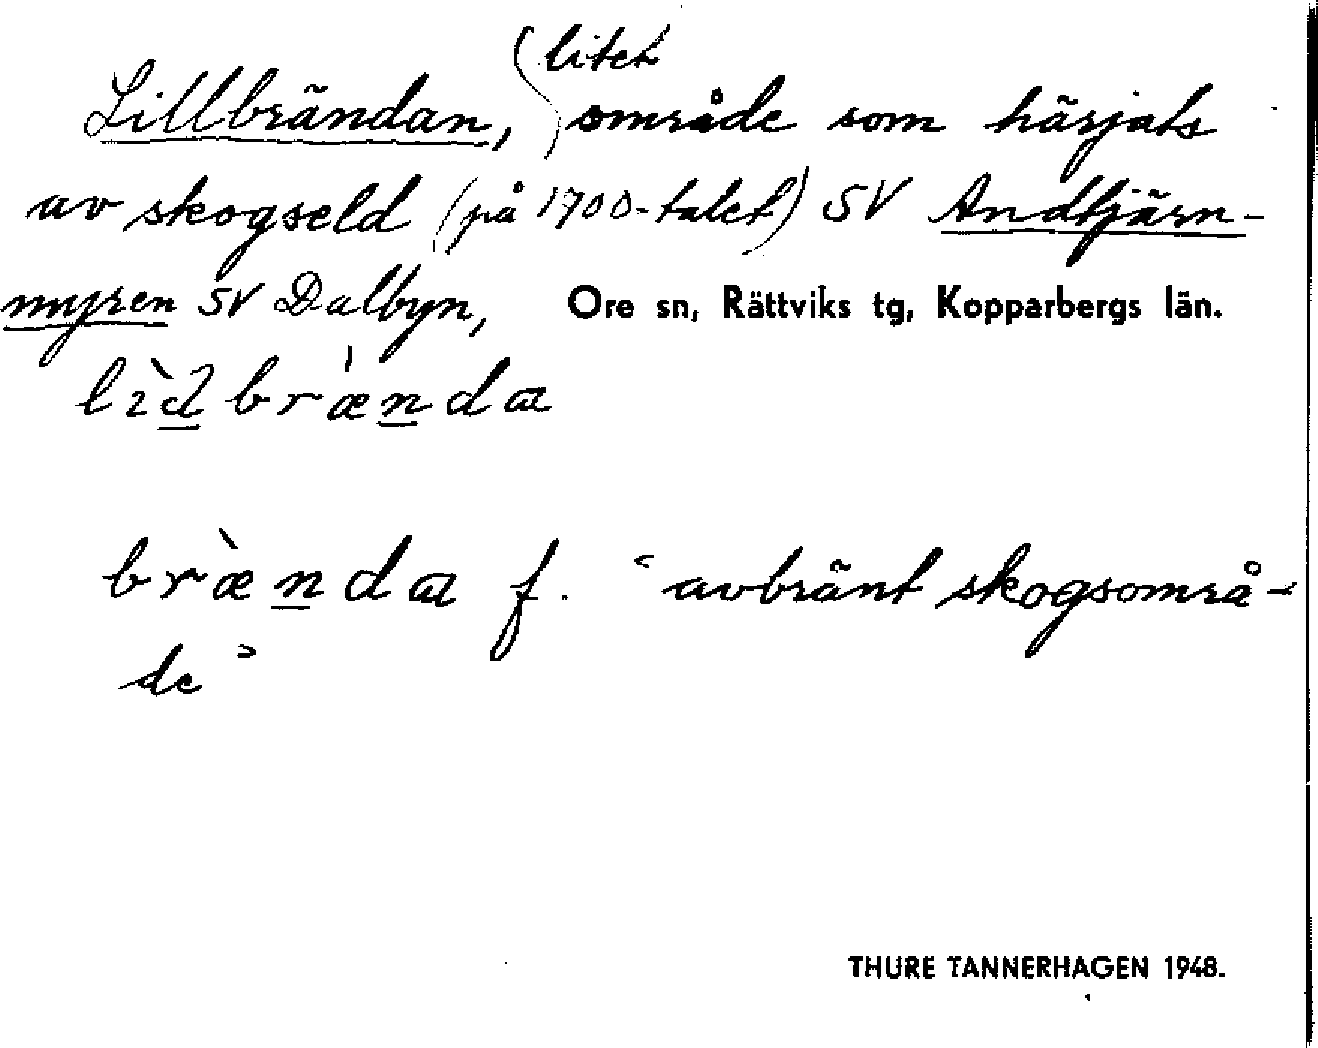 Lillbrändan, litet område som härjats
av skogseld (på 1700-talet) SV Andtjärn-
myren SV Dalbyn, Ore sn, Rättviks tg, Kopparbergs län.
brænda f. "avbränt skogsområ-
de"
THURE TANNERHAGEN 1948.